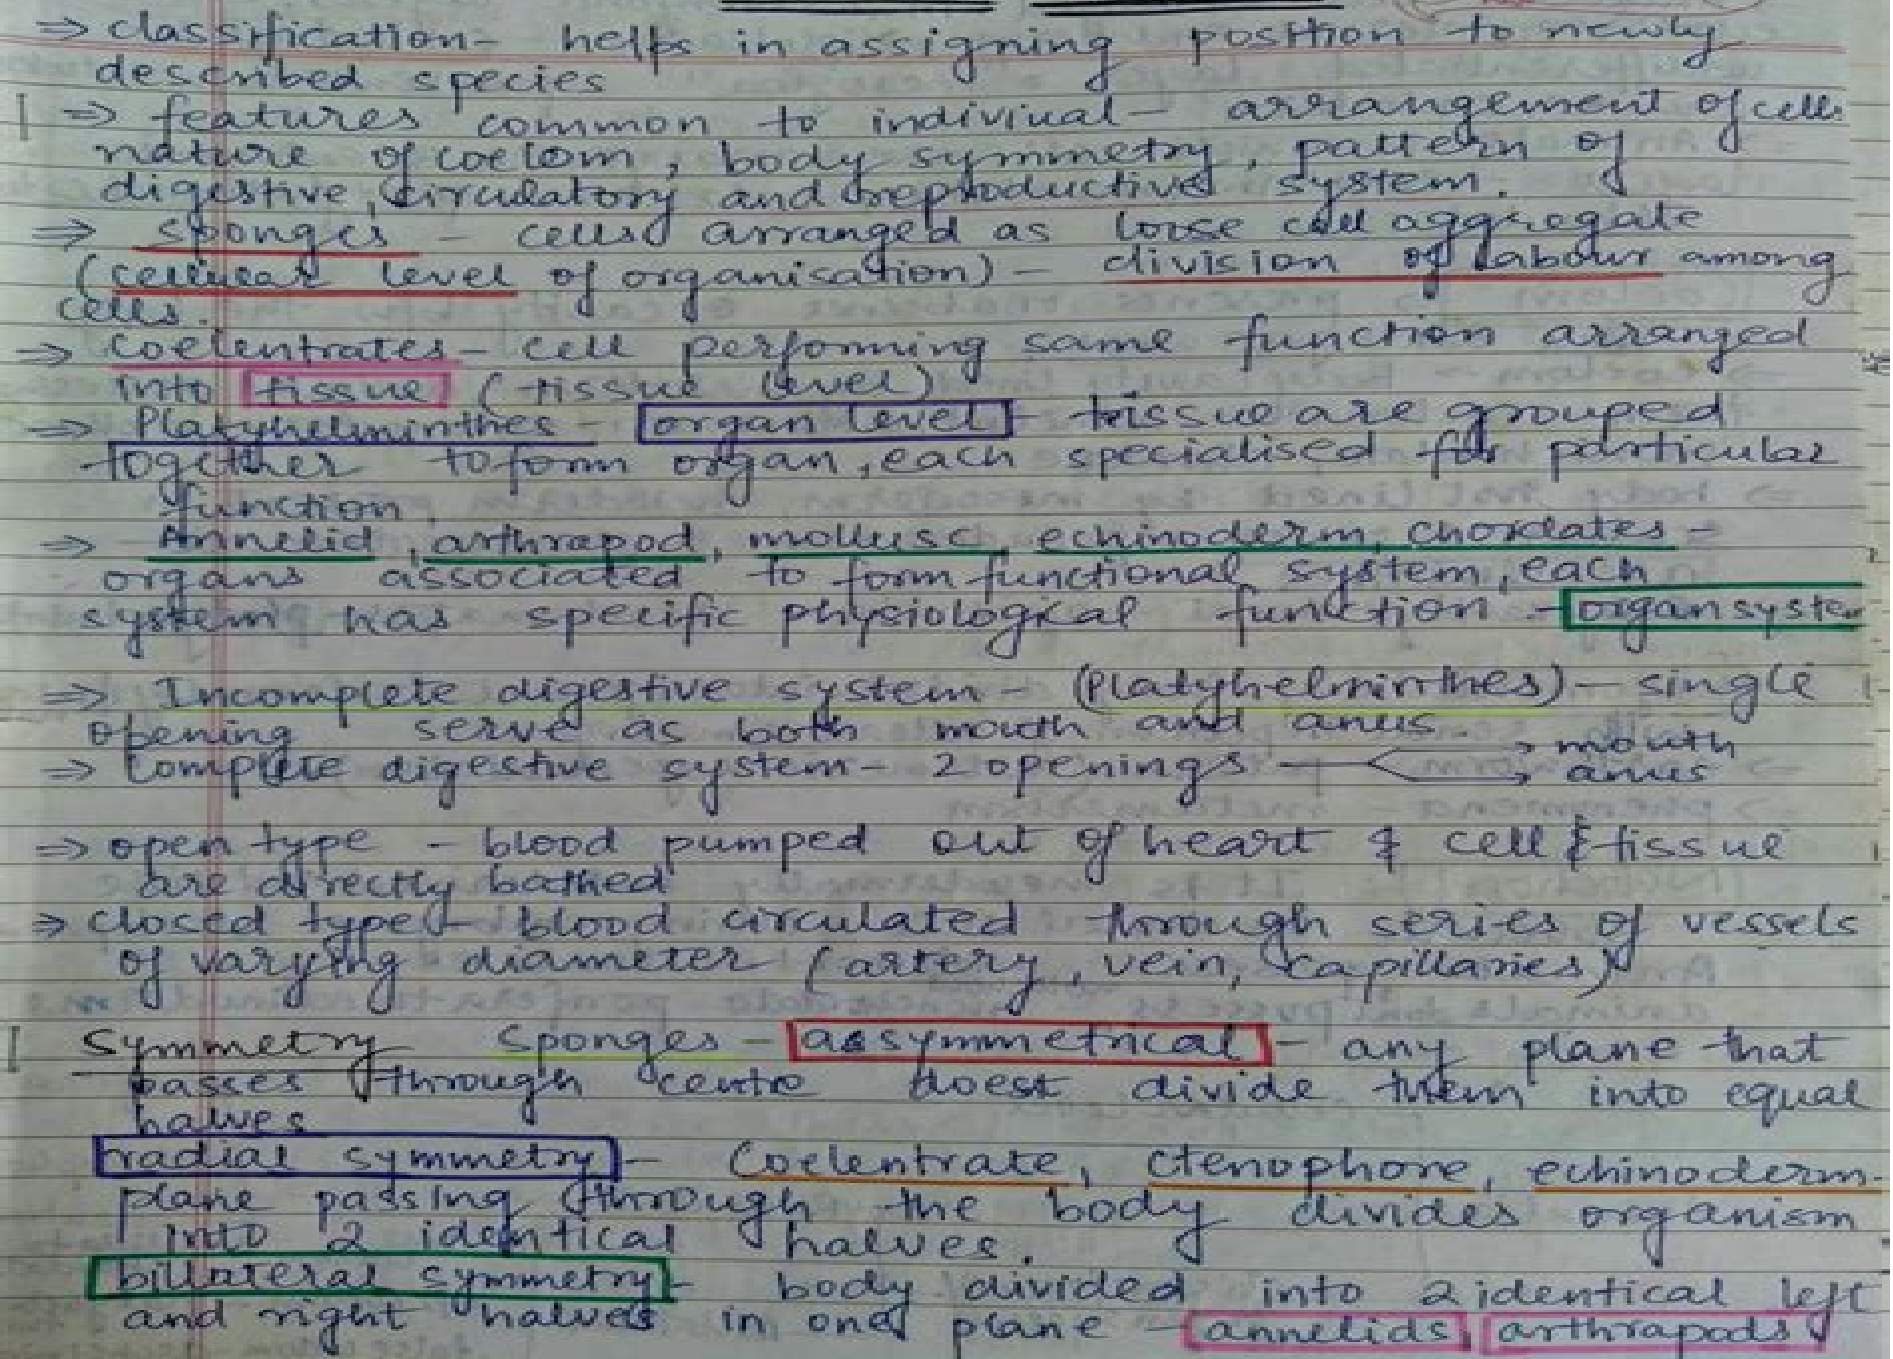 ⇒ classification- helps in assigning position to newly
described species
⇒ features common to indiviual - arrangement of cells
nature of coelom, body symmetry, pattern of
digestive, circulatory and reproductive system.
⇒ sponges - cells arranged as loose cell aggregate
(cellular level of organisation) - division of labour among
cells.
⇒ Coelentrates - cell performing same function arranged
into tissue (tissue level)
⇒ Platyhelminthes - organ level - tissue are grouped
together to form organ, each specialised for particular
function.
⇒ Annelid, arthrapod, mollusc, echinoderm, chordates -
organs associated to form functional system, each
system has specific physiological function - organ system
⇒ Incomplete digestive system - (Platyhelminthes) - single
opening serve as both mouth and anus.
⇒ Complete digestive system - 2 openings → mouth
→ anus
⇒ open type - blood pumped out of heart & cell & tissue
are directly bathed
⇒ closed type - blood circulated through series of vessels
of varying diameter (artery, vein, capillaries)
Symmetry Sponges - assymmetrical - any plane that
passes through centre doest divide them into equal
halves
radial symmetry - Coelentrate, ctenophore, echinoderm -
plane passing through the body divides organism
into 2 identical halves.
billateral symmetry - body divided into 2 identical left
and right halves in one plane - annelids, arthrapods